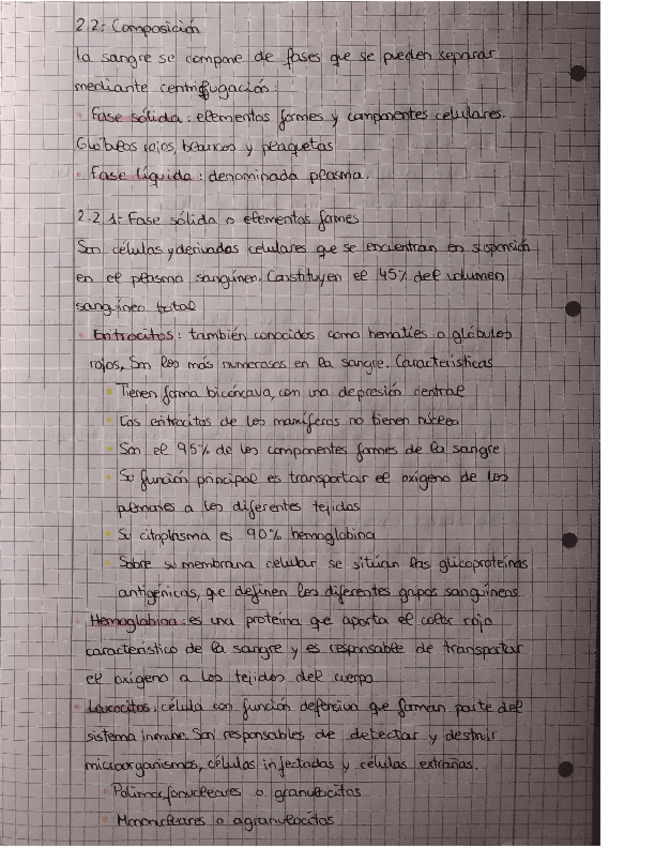 2.2: Composición
La sangre se compone de fases que se pueden separar
mediante centrifugación:
· Fase sólida: elementos formes y componentes celulares.
Glóbulos rojos, blancos y plaquetas
· Fase líquida: denominada plasma.
2.2.1: Fase sólida o elementos formes
Son células y derivados celulares que se encuentran en suspensión
en el plasma sanguíneo. Constituyen el 45% del volumen
sanguíneo total
· Eritrocitos: también conocidos como hematíes o glóbulos
rojos, Son los más numerosos en la sangre. Características
· Tienen forma bicóncava, con una depresión central
· Los eritrocitos de los mamíferos no tienen núcleo
· Son el 95% de los componentes formes de la sangre
· Su función principal es transportar el oxígeno de los
pulmones a los diferentes tejidos
· Su citoplasma es 90% hemoglobina
· Sobre su membrana celular se sitúan las glicoproteínas
antigénicas, que definen los diferentes grupos sanguíneos
· Hemoglobina: es una proteína que aporta el color rojo
característico de la sangre y es responsable de transportar
el oxígeno a los tejidos del cuerpo
· Leucocitos: célula con función defensiva que forman parte del
sistema inmune. Son responsables de detectar y destruir
microorganismos, células infectadas y células extrañas.
· Polimorfonucleares o granulocitos
· Mononucleares o agranulocitos